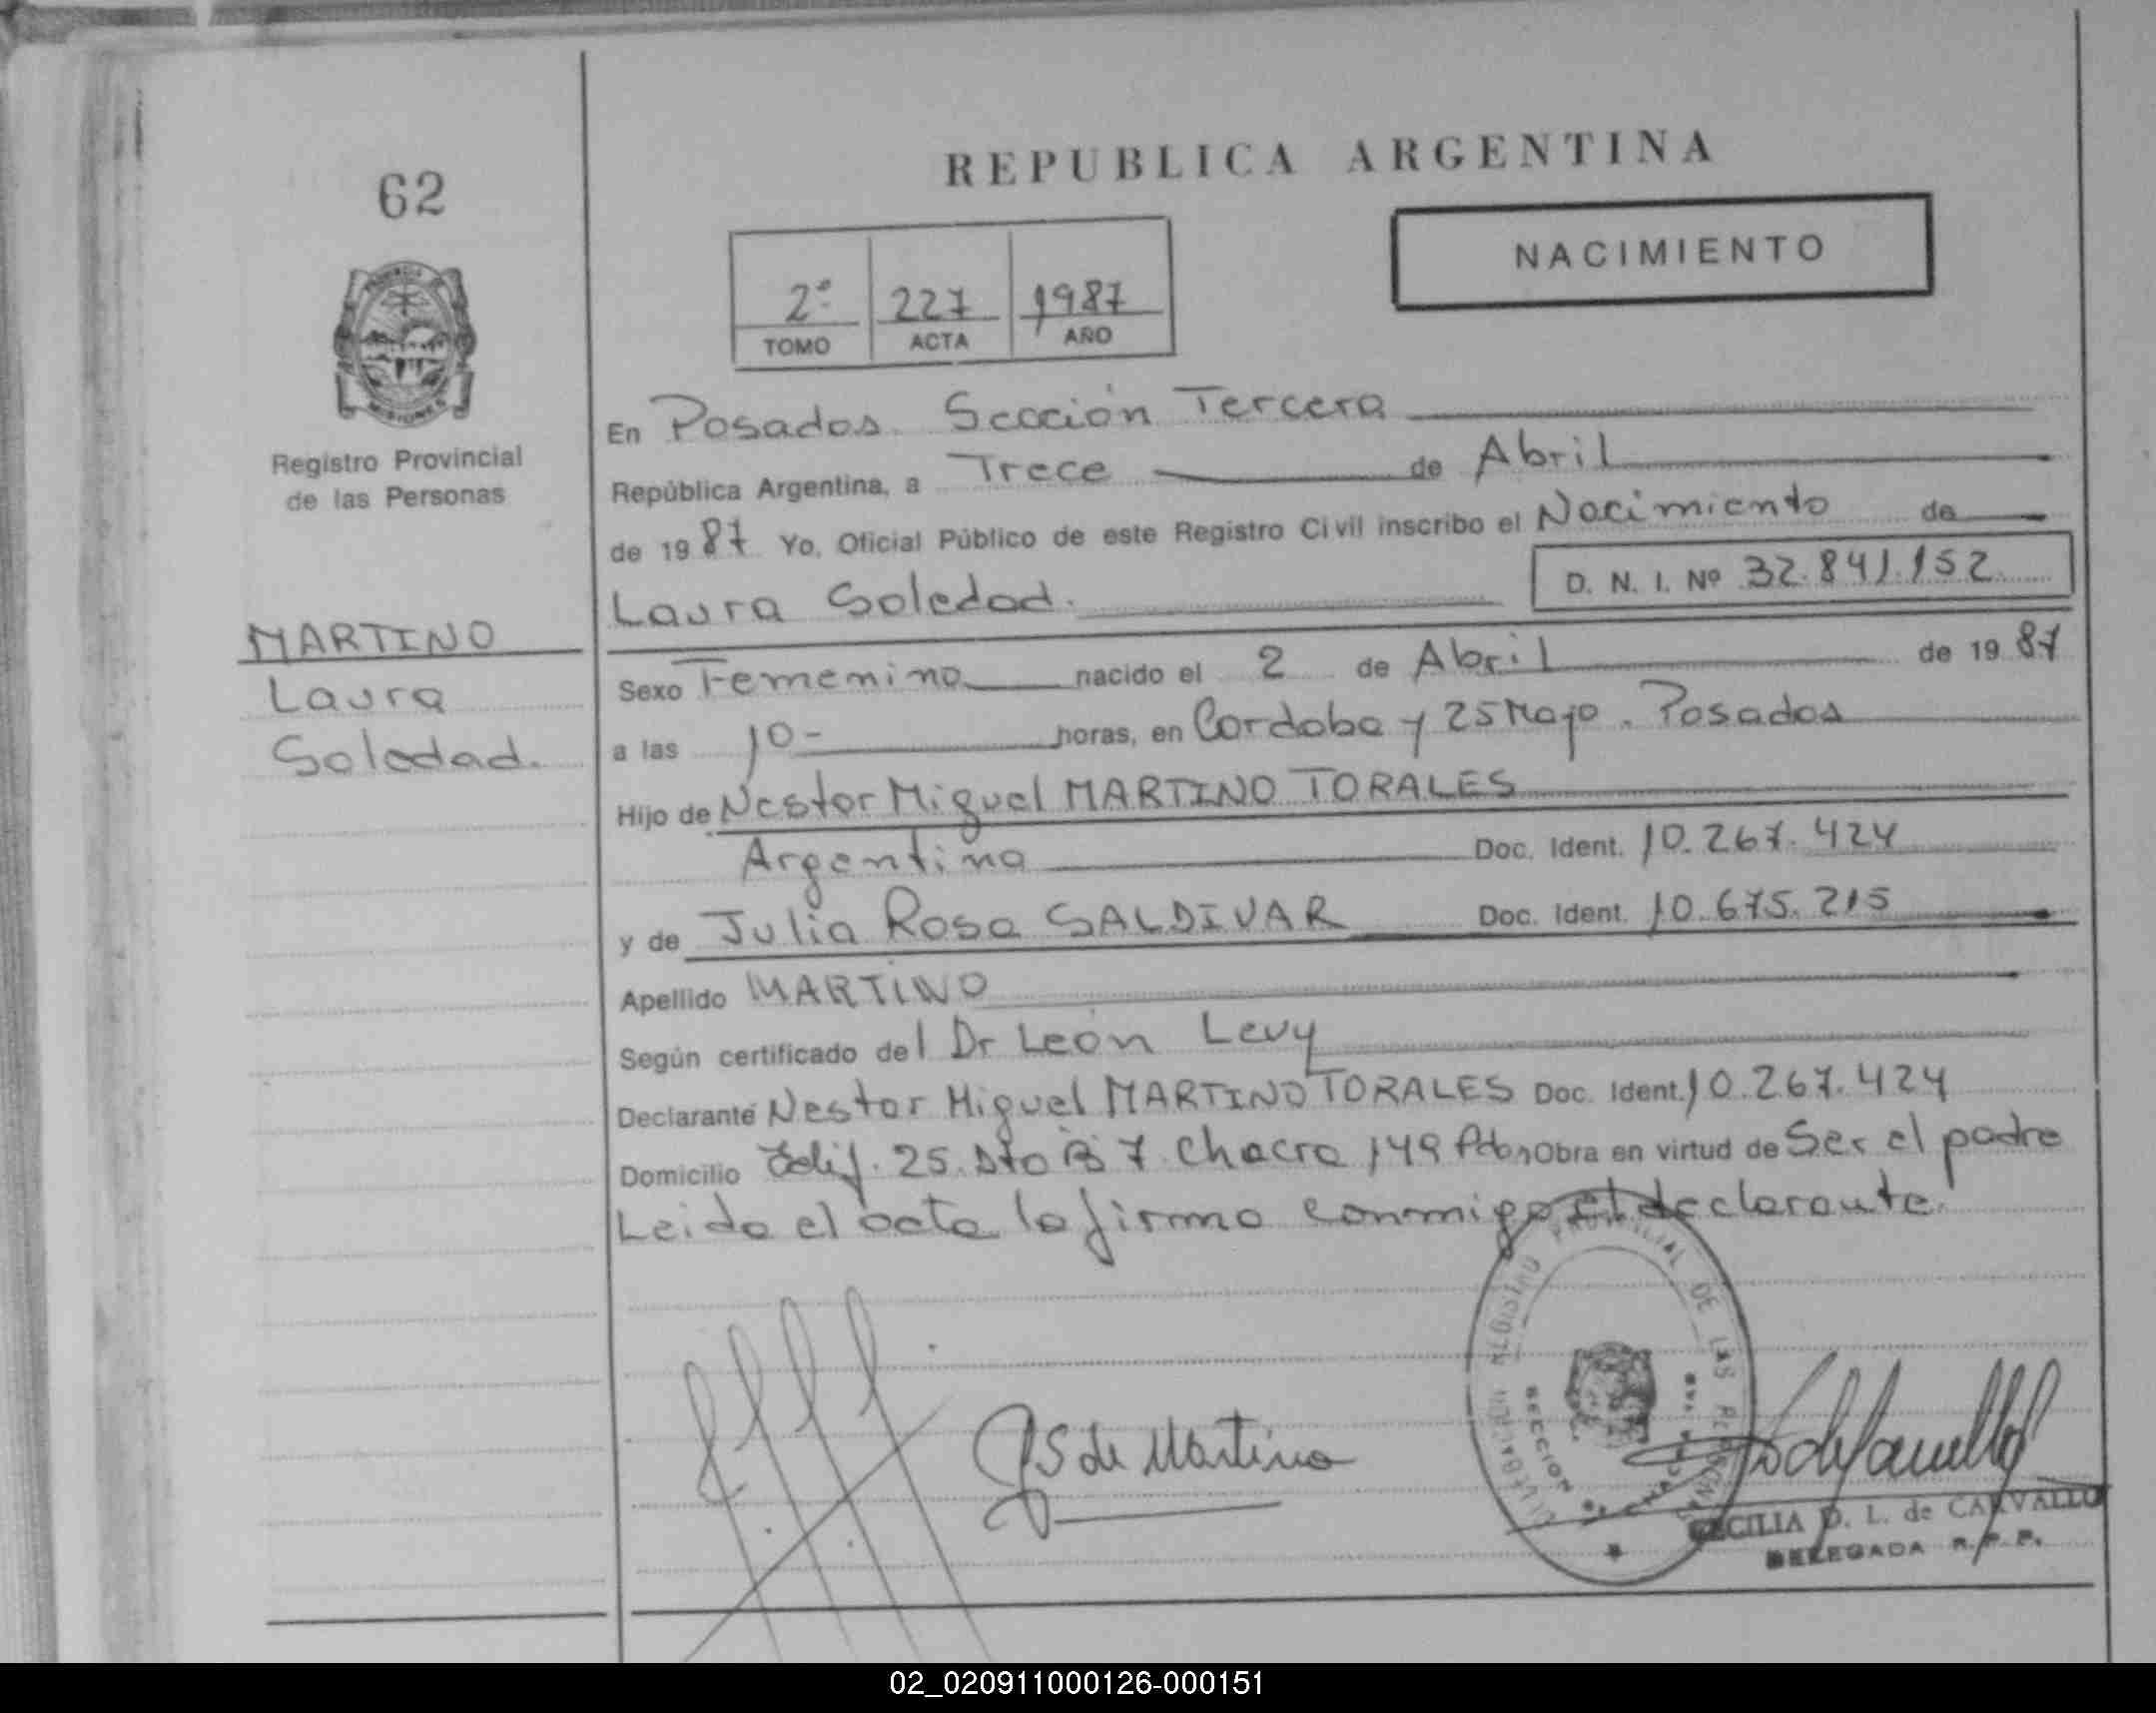 REPUBLICA ARGENTINA
62
NACIMIENTO
2º 227 1987
TOMO ACTA AÑO
MISIONES
Registro Provincial
de las Personas
En Posadas. Sección Tercera
República Argentina, a Trece de Abril
de 1987 Yo, Oficial Público de este Registro Civil inscribo el Nacimiento de
Laura Soledad. D. N. I. Nº 32.841.152
MARTINO
Laura
Soledad.
Sexo Femenino nacido el 2 de Abril de 1987
a las 10- horas, en Cordoba y 25 Mayo. Posadas
Hijo de Nestor Miguel MARTINO TORALES
Argentino Doc. Ident. 10.267.424
y de Julia Rosa SALDIVAR Doc. Ident. 10.675.215
Apellido MARTINO
Según certificado del Dr León Levy
Declarante Nestor Miguel MARTINO TORALES Doc. Ident. 10.267.424
Domicilio Edif. 25. Dto B 7 Chacra 149 Obra en virtud de Ser el padre
Leida el acta la firma conmigo el declarante.
REGISTRO PROVINCIAL DE LAS PERSONAS
SECCION
JS de Martino
CECILIA D. L. de CARVALLO
DELEGADA R. P. P.
02_020911000126-000151